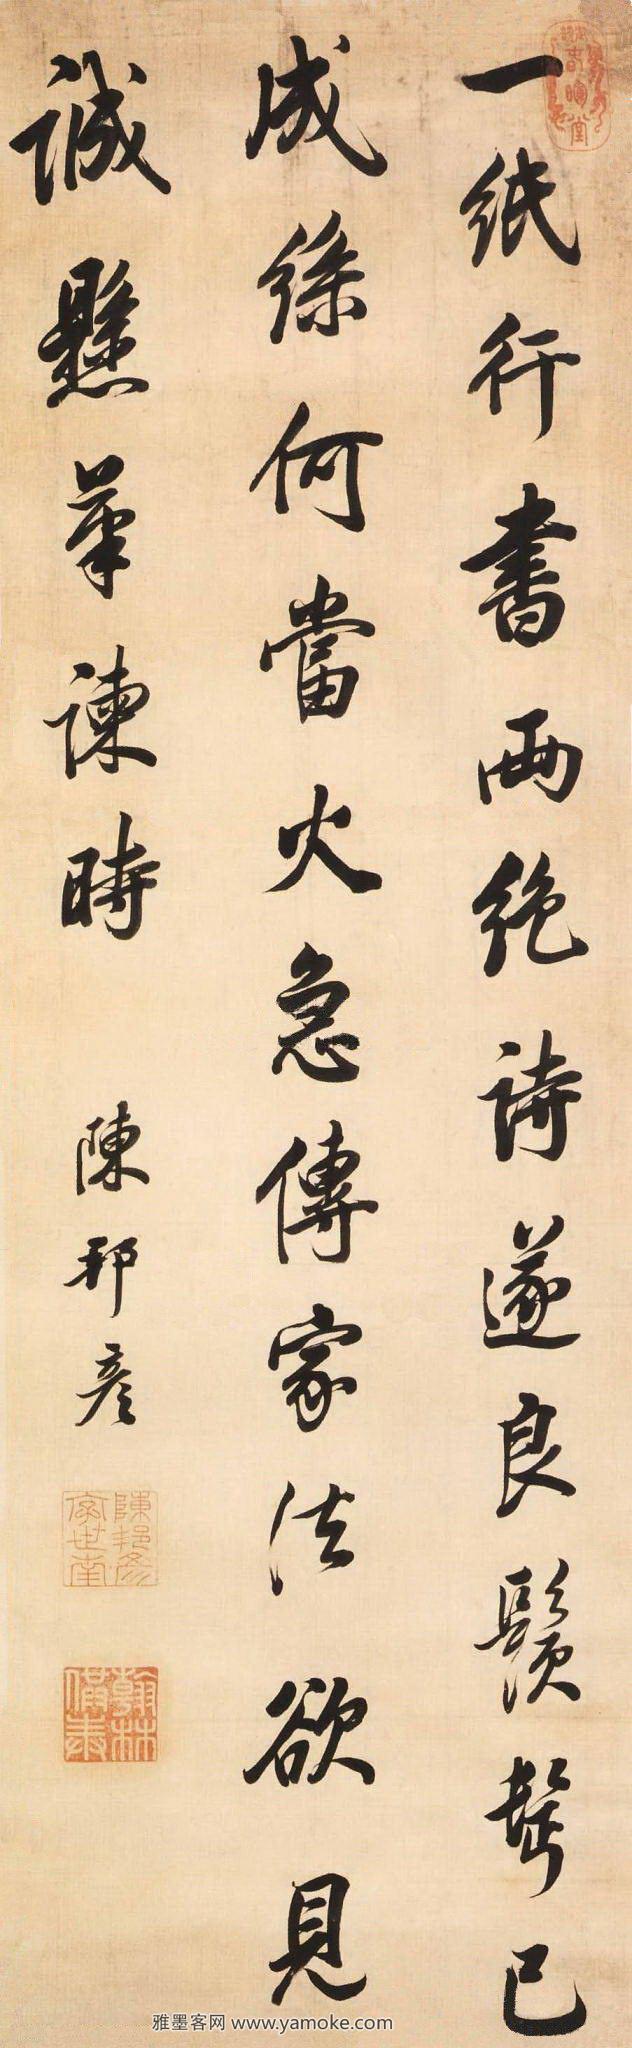 一紙行書兩絕詩遂良鬚鬢已
成絲何當火急傳家法欲見
誠懸筆諫時
陳邦彥
春暉堂
陳邦彥
翰林
雅墨客网 www.yamoke.com